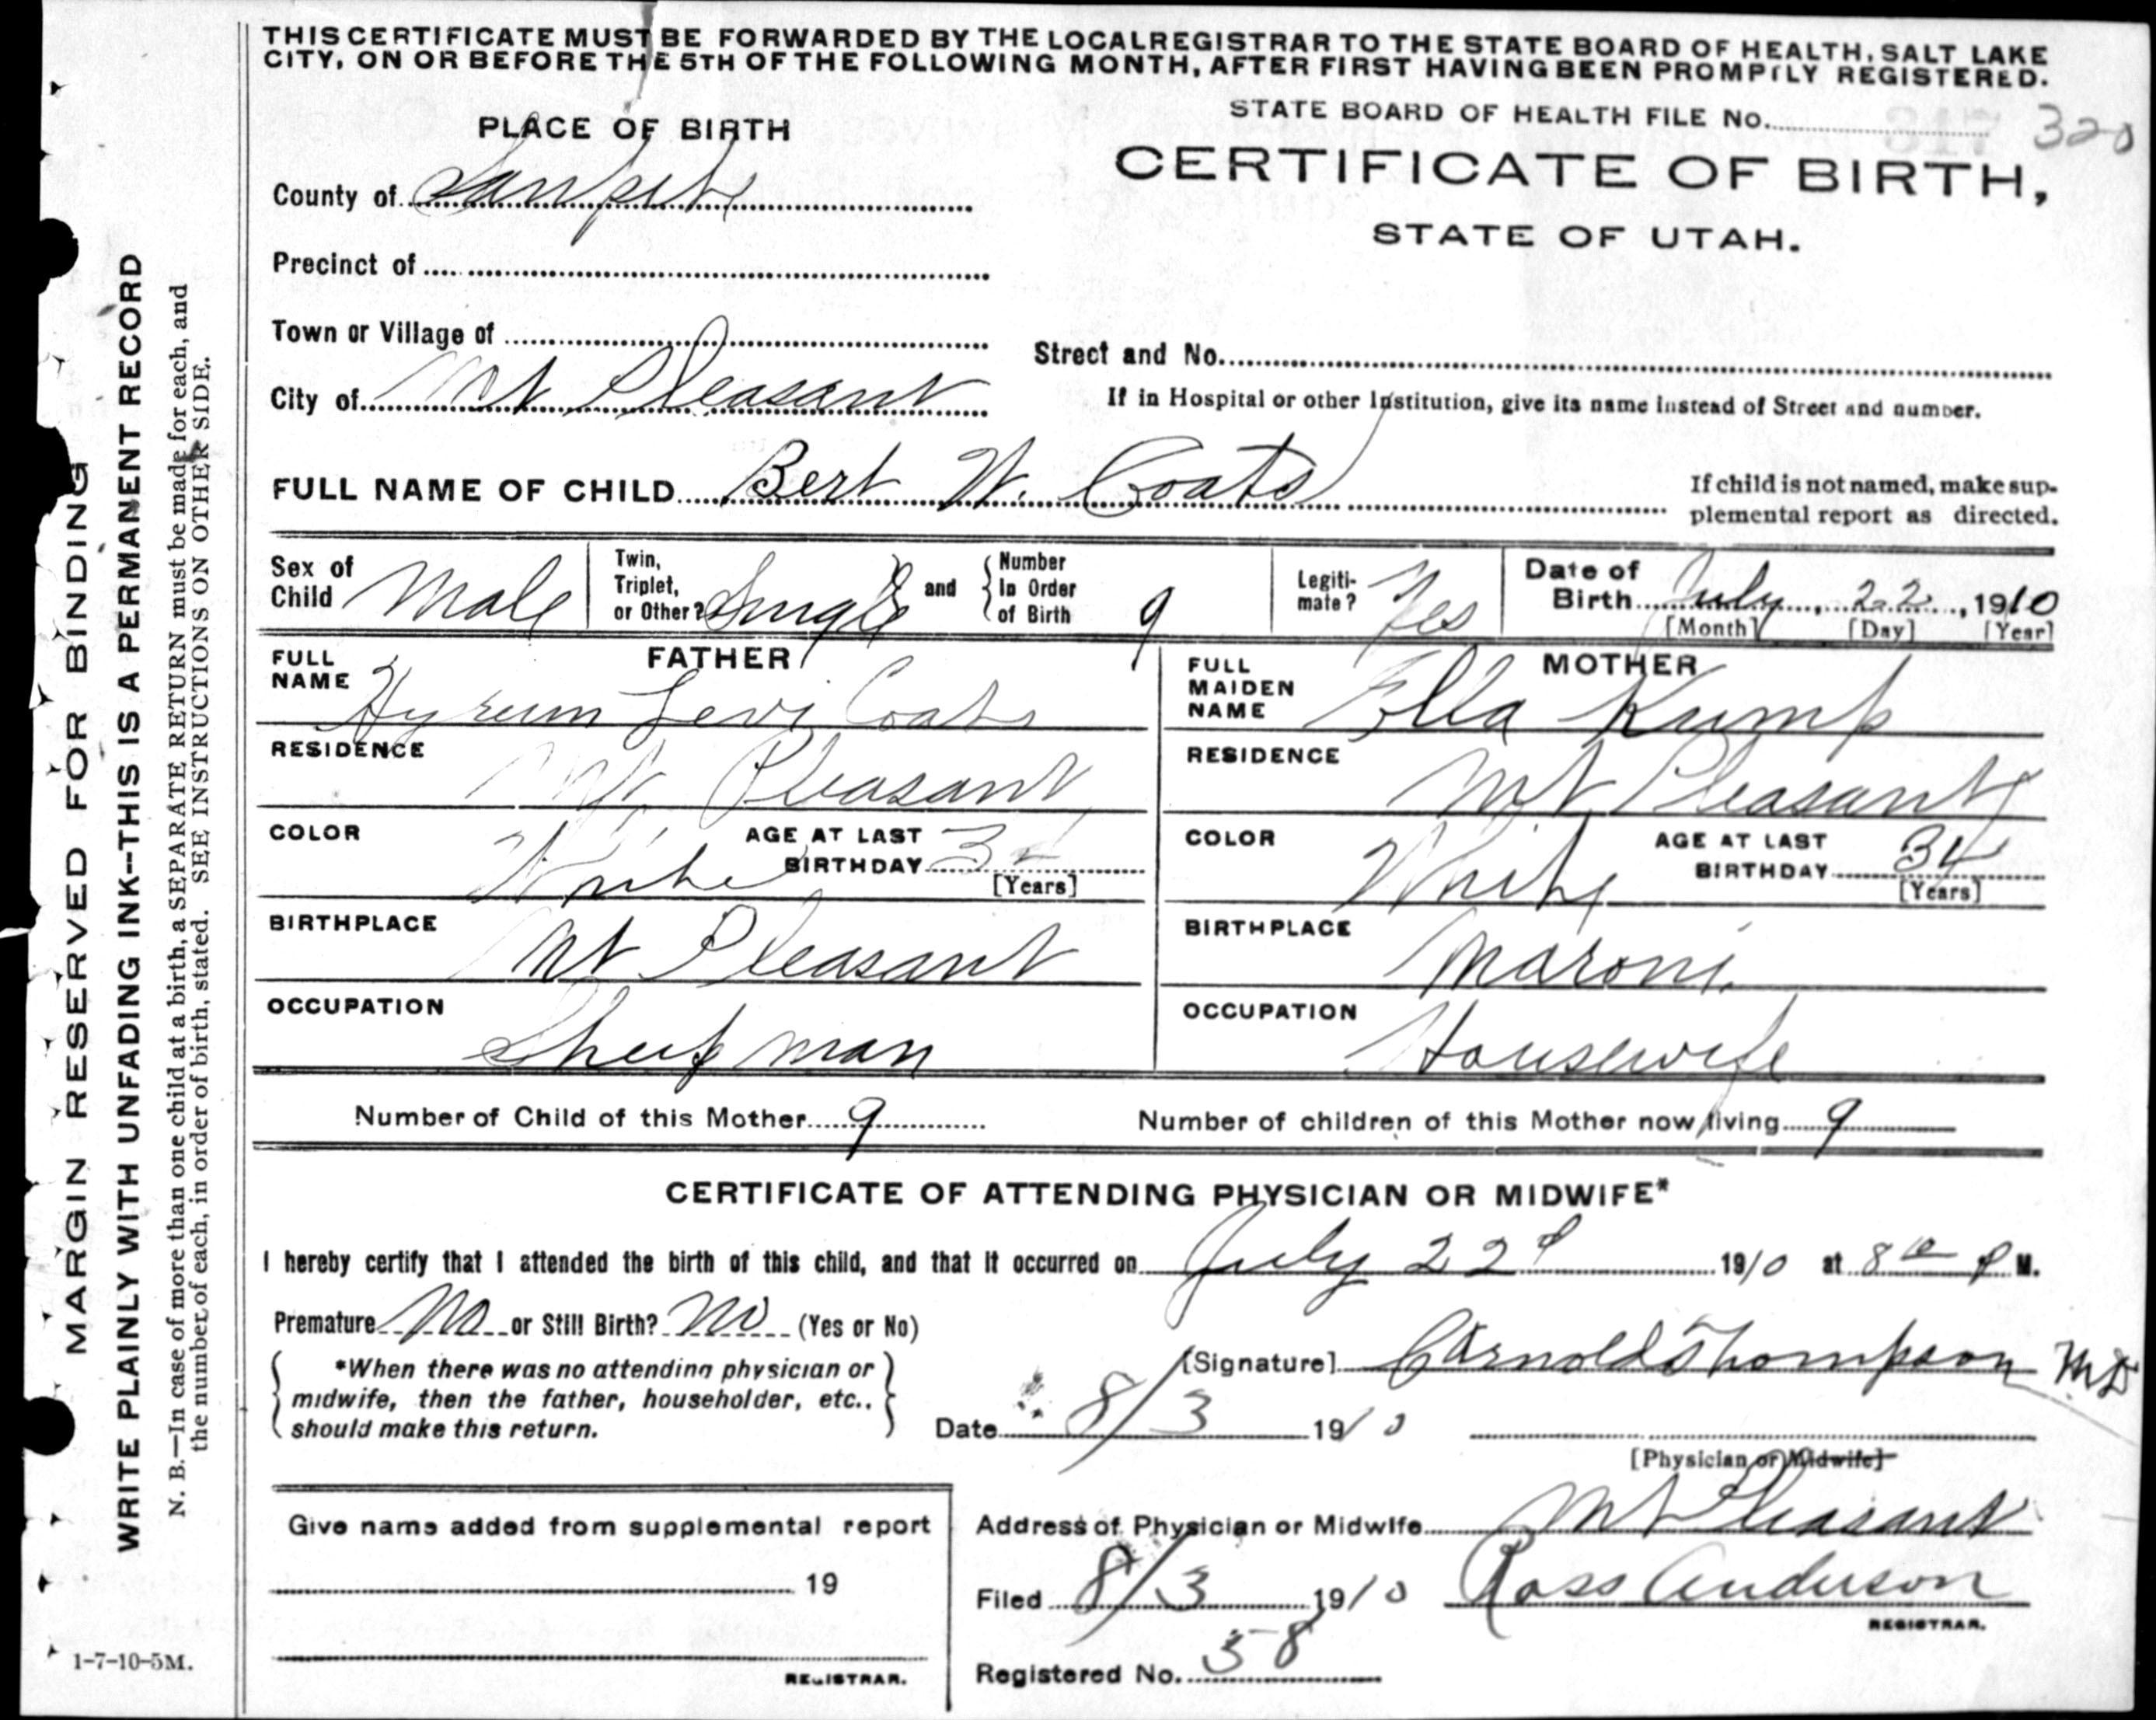 THIS CERTIFICATE MUST BE FORWARDED BY THE LOCAL REGISTRAR TO THE STATE BOARD OF HEALTH, SALT LAKE
CITY, ON OR BEFORE THE 5TH OF THE FOLLOWING MONTH, AFTER FIRST HAVING BEEN PROMPTLY REGISTERED.
STATE BOARD OF HEALTH FILE No. 317 320
PLACE OF BIRTH
CERTIFICATE OF BIRTH,
STATE OF UTAH.
County of Sanpete
Precinct of
Town or Village of
Street and No.
City of Mt Pleasant
If in Hospital or other Institution, give its name instead of Street and number.
FULL NAME OF CHILD Bert W. Coats
If child is not named, make sup-
plemental report as directed.
Sex of Child Male
Twin, Triplet, or Other? Single and Number In Order of Birth 9
Legiti-mate? Yes
Date of Birth July, 22, 1910
[Month] [Day] [Year]
FATHER
FULL NAME Hyrum Levi Coats
RESIDENCE Mt Pleasant
COLOR White
AGE AT LAST BIRTHDAY 3
[Years]
BIRTHPLACE Mt Pleasant
OCCUPATION Sheepman
MOTHER
FULL MAIDEN NAME Ella Kump
RESIDENCE Mt Pleasant
COLOR White
AGE AT LAST BIRTHDAY 34
[Years]
BIRTHPLACE Maroni
OCCUPATION Housewife
Number of Child of this Mother 9
Number of children of this Mother now living 9
CERTIFICATE OF ATTENDING PHYSICIAN OR MIDWIFE*
I hereby certify that I attended the birth of this child, and that it occurred on July 22d 1910 at 8 10 P M.
Premature No or Still Birth? No (Yes or No)
*When there was no attending physician or
midwife, then the father, householder, etc.,
should make this return.
[Signature] C Arnold Thompson MD
Date 8/3 1910
[Physician or Midwife]
Give name added from supplemental report
19
REGISTRAR.
Address of Physician or Midwife Mt Pleasant
Filed 8/3 1910 Ross Anderson
REGISTRAR.
Registered No. 58
MARGIN RESERVED FOR BINDING
WRITE PLAINLY WITH UNFADING INK--THIS IS A PERMANENT RECORD
N. B.—In case of more than one child at a birth, a SEPARATE RETURN must be made for each, and
the number of each, in order of birth, stated. SEE INSTRUCTIONS ON OTHER SIDE.
1-7-10-5M.